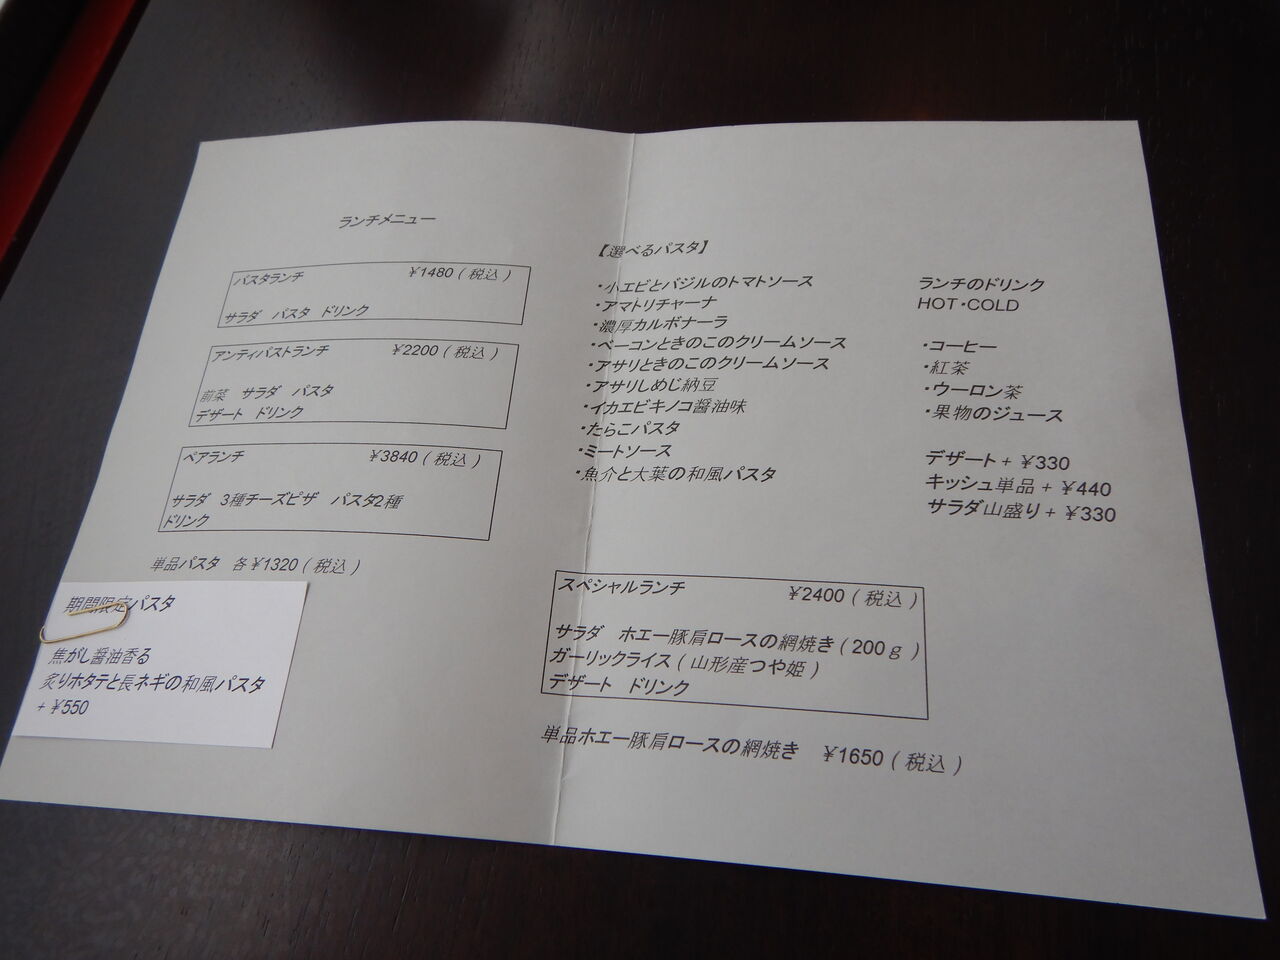 ランチメニュー
パスタランチ ￥1480（税込）
サラダ パスタ ドリンク
アンティパストランチ ￥2200（税込）
前菜 サラダ パスタ
デザート ドリンク
ペアランチ ￥3840（税込）
サラダ 3種チーズピザ パスタ2種
ドリンク
単品パスタ 各￥1320（税込）
期間限定パスタ
焦がし醤油香る
炙りホタテと長ネギの和風パスタ
+￥550
【選べるパスタ】
・小エビとバジルのトマトソース
・アマトリチャーナ
・濃厚カルボナーラ
・ベーコンときのこのクリームソース
・アサリときのこのクリームソース
・アサリしめじ納豆
・イカエビキノコ醤油味
・たらこパスタ
・ミートソース
・魚介と大葉の和風パスタ
ランチのドリンク
HOT・COLD
・コーヒー
・紅茶
・ウーロン茶
・果物のジュース
デザート+￥330
キッシュ単品+￥440
サラダ山盛り+￥330
スペシャルランチ ￥2400（税込）
サラダ ホエー豚肩ロースの網焼き（200ｇ）
ガーリックライス（山形産つや姫）
デザート ドリンク
単品ホエー豚肩ロースの網焼き ￥1650（税込）